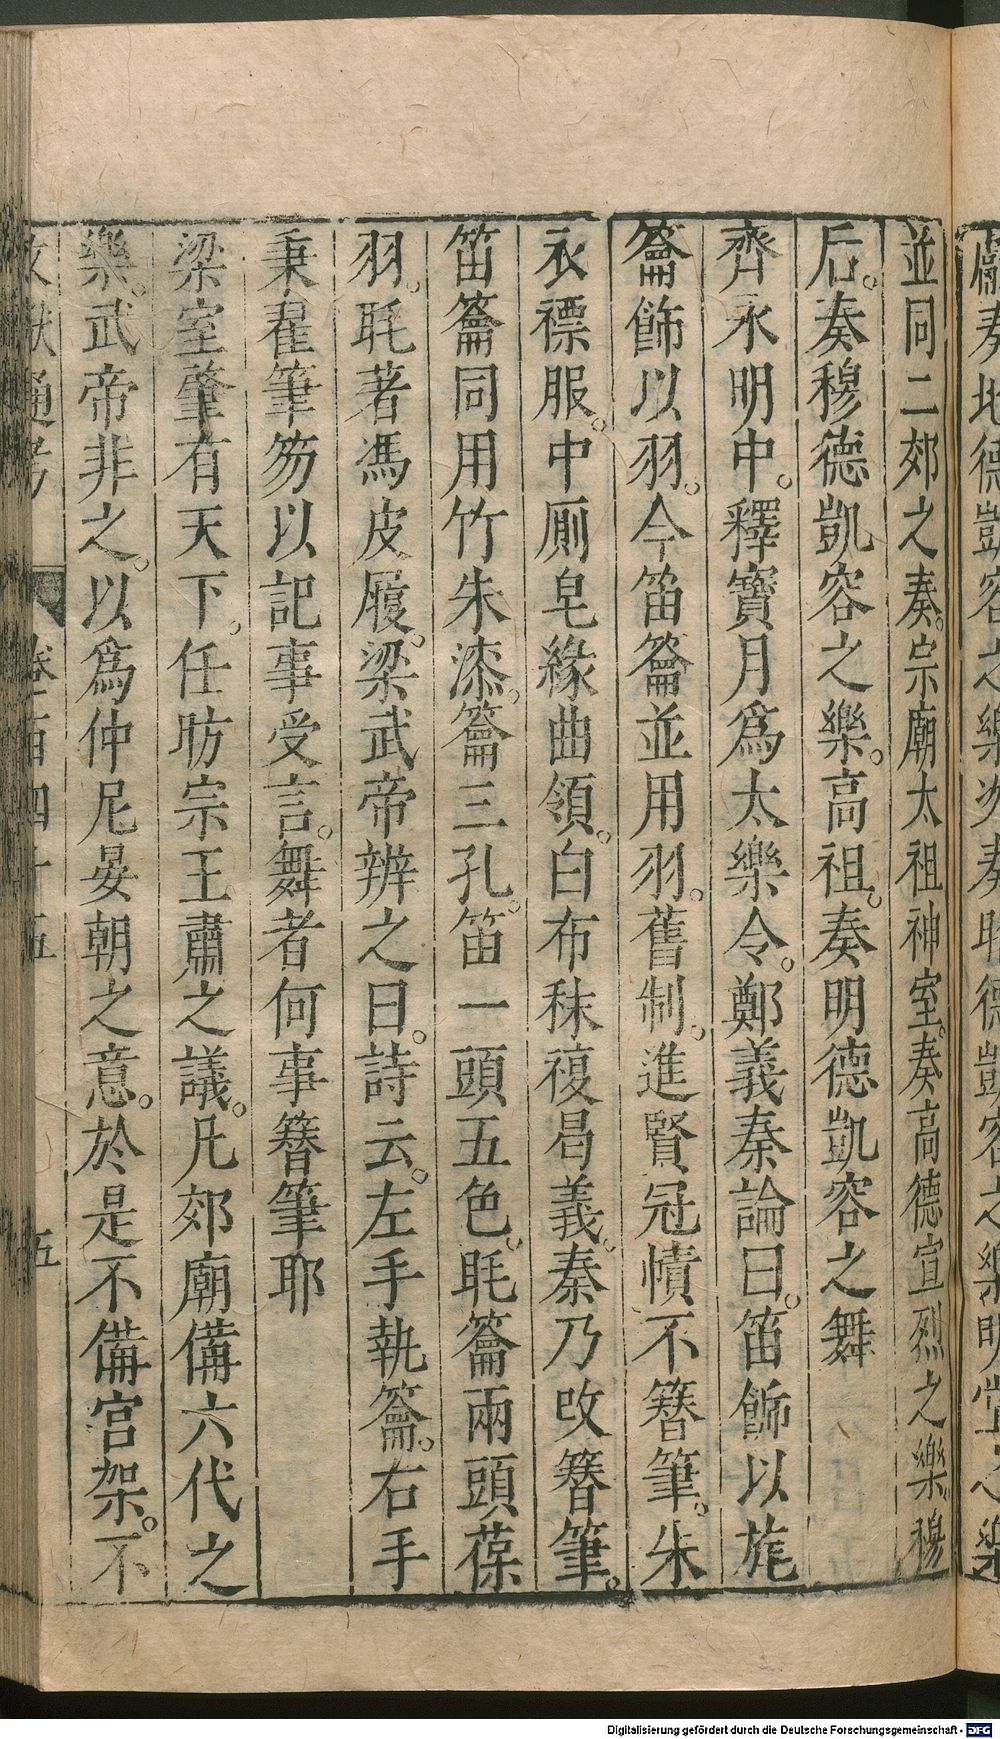 獻奏地德凱容之樂次奏昭德凱容之樂明堂之樂
並同二郊之奏。宗廟太祖神室。奏高德宣烈之樂。穆
后。奏穆德凱容之樂。高祖。奏明德凱容之舞
齊永明中。釋寶月爲太樂令。鄭義秦論曰。笛飾以旄
籥飾以羽。今笛籥並用羽。舊制。進賢冠幘不簪筆。朱
衣褾服。中厠皂緣曲領。白布袜複曷義。秦乃改簪筆。
笛籥同用竹朱漆。籥三孔。笛一頭五色。毦籥兩頭葆
羽。毦著馮皮履。梁武帝辨之曰。詩云。左手執籥。右手
秉翟筆笏以記事受言。舞者何事簪筆耶
梁室肇有天下。任昉宗王肅之議。凡郊廟備六代之
樂。武帝非之。以爲仲尼晏朝之意。於是不備宫架。不
文獻通考 卷一百四十五 五
Digitalisierung gefördert durch die Deutsche Forschungsgemeinschaft - DFG